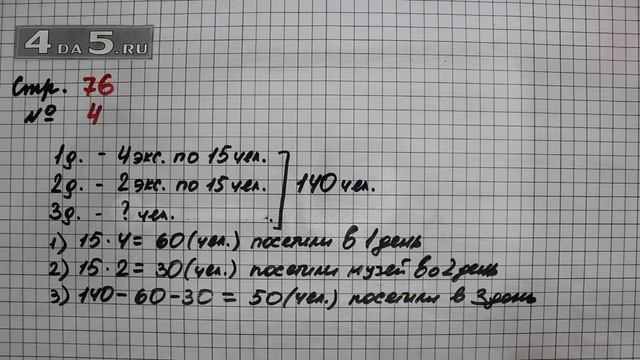 4 DA 5.RU
Стр. 76
№ 4
1 д. - 4 экс. по 15 чел.
2 д. - 2 экс. по 15 чел. 140 чел.
3 д. - ? чел.
1) 15 · 4 = 60 (чел.) посетили в 1 день
2) 15 · 2 = 30 (чел.) посетили музей во 2 день
3) 140 - 60 - 30 = 50 (чел.) посетили в 3 день